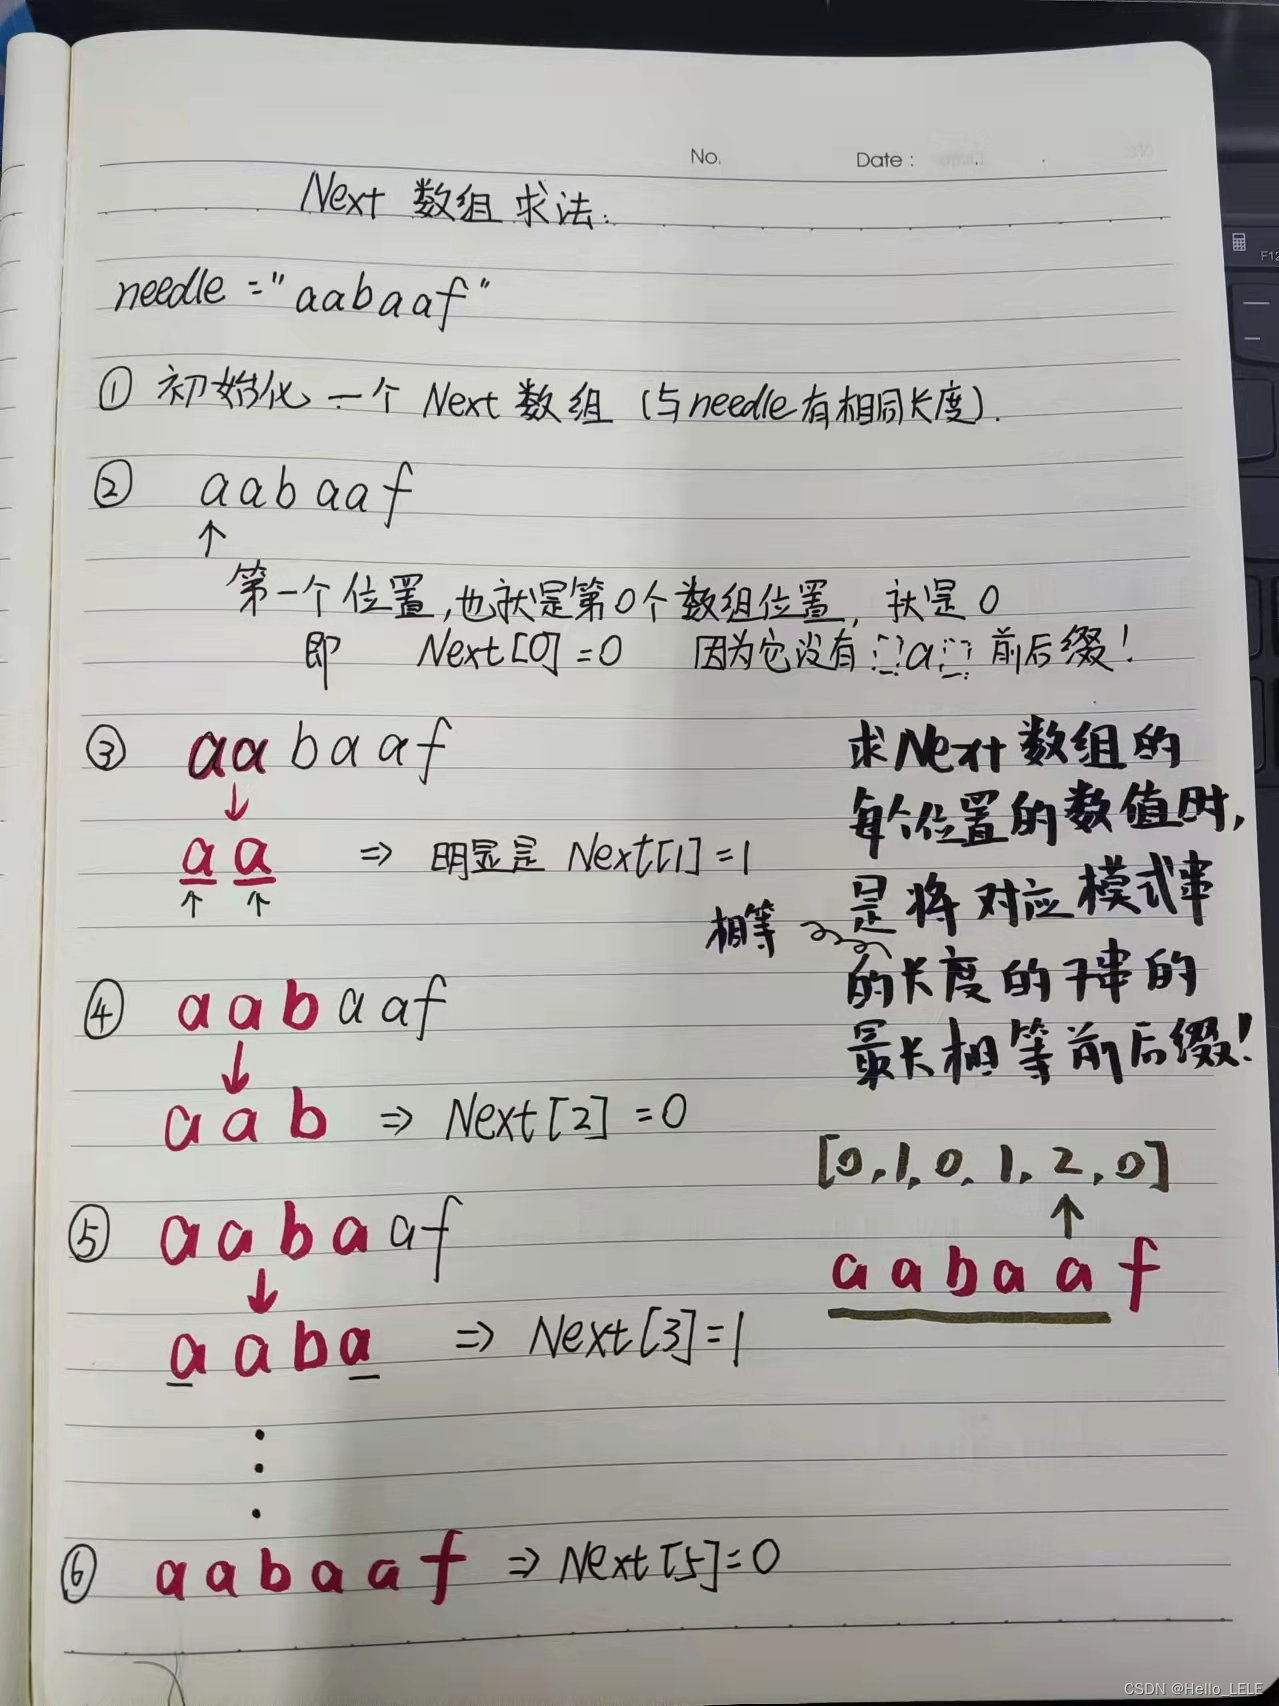 No.
Date :
Next 数组求法:
needle ="aabaaf"
① 初始化一个 Next 数组 (与needle有相同长度).
② aabaaf
↑
第一个位置,也就是第0个数组位置, 就是0
即 Next[0]=0 因为它没有 a 前后缀!
③ aabaaf
↓
a a ⇒ 明显是 Next[1]=1
↑ ↑
④ aabaaf
↓
aab ⇒ Next[2]=0
⑤ aabaaf
↓
aaba ⇒ Next[3]=1
⑥ aabaaf ⇒ Next[5]=0
求Next数组的
每个位置的数值时,
是将对应模式串
相等
的长度的子串的
最长相等前后缀!
[0,1,0,1,2,0]
↑
aabaaf
F12
CSDN @Hello_LELE